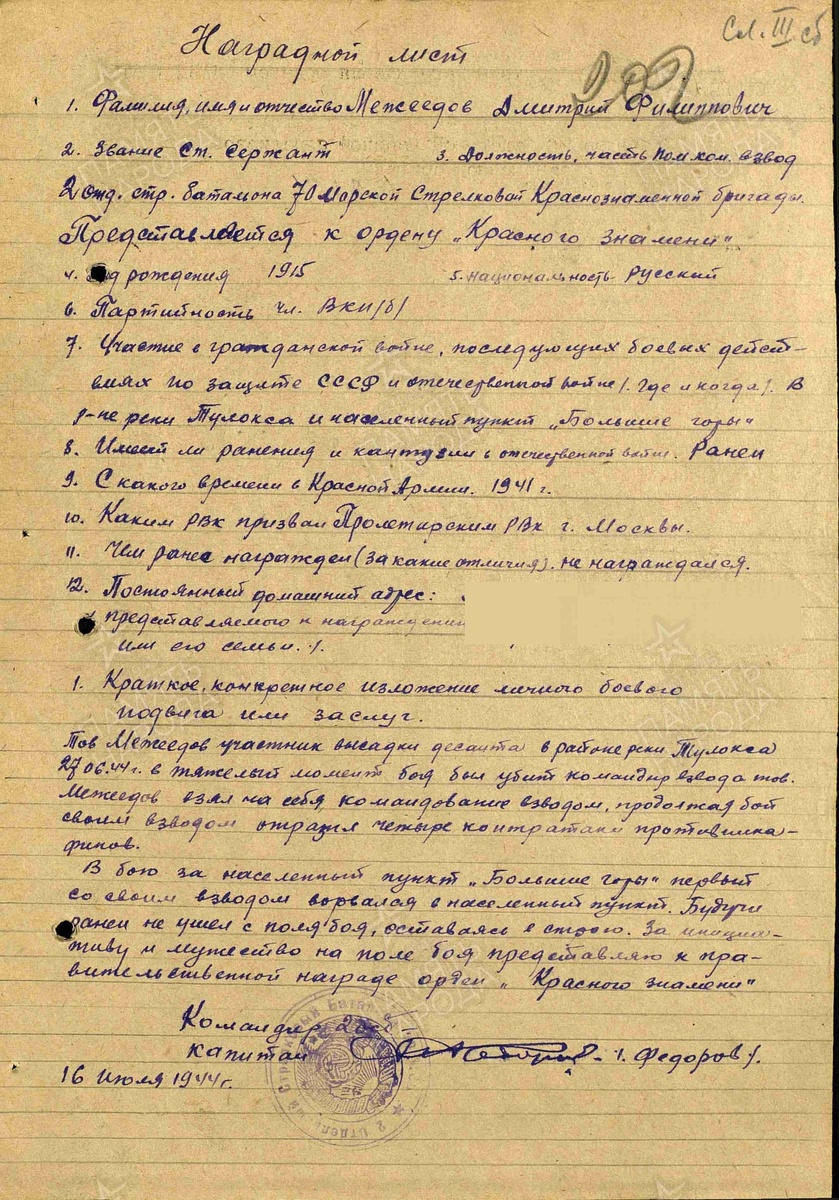 Сл. III сб
Наградной лист
1. Фамилия, имя и отчество Межеедов Дмитрий Филиппович
2. Звание Ст. Сержант 3. Должность, часть Пом. ком. взвод
2 отд. стр. батальона 70 Морской Стрелковой Краснознаменной бригады.
Представляется к ордену „Красного знамени"
4. Год рождения 1915 5. национальность Русский
6. Партийность чл. ВКП/б/
7. Участие в гражданской войне, последующих боевых дейст-
виях по защите СССР и отечественной войне /. Где и когда /. В
р-не реки Тулокса и населенный пункт „Большие горы"
8. Имеет ли ранения и кантузии в отечественной войне. Ранен
9. С какого времени в Красной Армии. 1941 г.
10. Каким РВК призван Пролетарским РВК г. Москвы.
11. Чем ранее награжден (за какие отличия). не награждался.
12. Постоянный домашний адрес:
/ представляемого к награждению
или его семьи. /.
1. Краткое, конкретное изложение личного боевого
подвига или заслуг.
Тов Межеедов участник высадки десанта в районе реки Тулокса
27.06.44 г. в тяжелый момент боя был убит командир взвода тов.
Межеедов взял на себя командование взводом, продолжая бой
своим взводом отразил четыре контратаки противника-
финов.
В бою за населенный пункт „Большие горы" первый
со своим взводом ворвался в населенный пункт. Будучи
ранен не ушел с поля боя, оставаясь в строю. За инициа-
тиву и мужество на поле боя представляю к пра-
вительственной награде орден „Красного знамени"
Командир 2 осб
капитан /. Федоров /.
16 Июля 1944 г.
2 Отдельный Стрелковый Батальон
ПАМЯТЬ НАРОДА